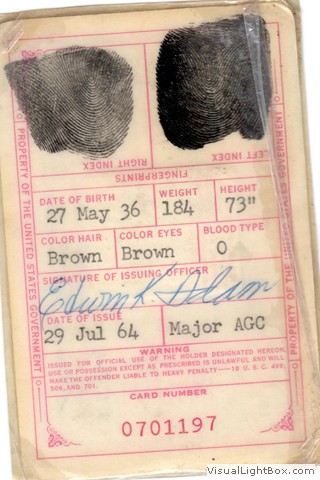 RIGHT INDEX
LEFT INDEX
FINGERPRINTS
PROPERTY OF THE UNITED STATES GOVERNMENT
PROPERTY OF THE UNITED STATES GOVERNMENT
DATE OF BIRTH WEIGHT HEIGHT
27 May 36 184 73"
COLOR HAIR COLOR EYES BLOOD TYPE
Brown Brown O
SIGNATURE OF ISSUING OFFICER
DATE OF ISSUE
29 Jul 64 Major AGC
WARNING
ISSUED FOR OFFICIAL USE OF THE HOLDER DESIGNATED HEREON.
USE OR POSSESSION EXCEPT AS PRESCRIBED IS UNLAWFUL AND WILL
MAKE THE OFFENDER LIABLE TO HEAVY PENALTY—18 U.S.C. 499,
506, AND 701.
CARD NUMBER
0701197
VisualLightBox.com